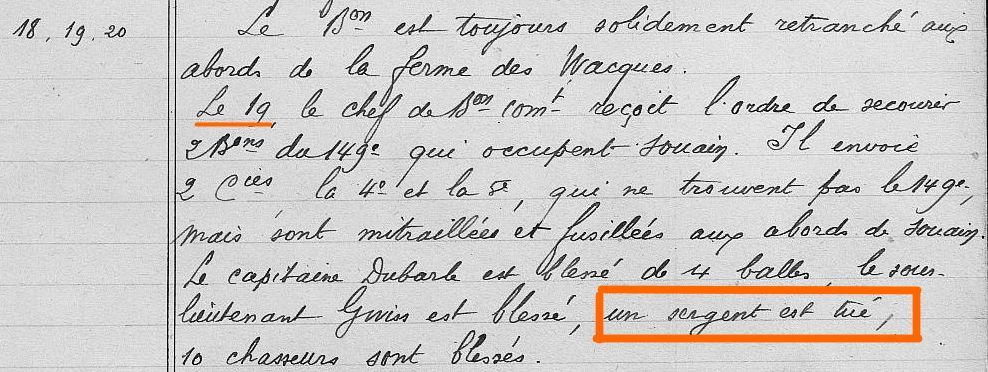 18, 19, 20
Le Bon est toujours solidement retranché aux
abords de la ferme des Wacques.
Le 19, le chef de Bon comt reçoit l'ordre de secourir
2 Bons du 149e qui occupent Souain. Il envoie
2 Cies la 4e et la 5e, qui ne trouvent pas le 149e,
mais sont mitraillées et fusillées aux abords de Souain.
Le capitaine Dubarle est blessé de 4 balles, le sous-
lieutenant est blessé, un sergent est tué,
10 chasseurs sont blessés.